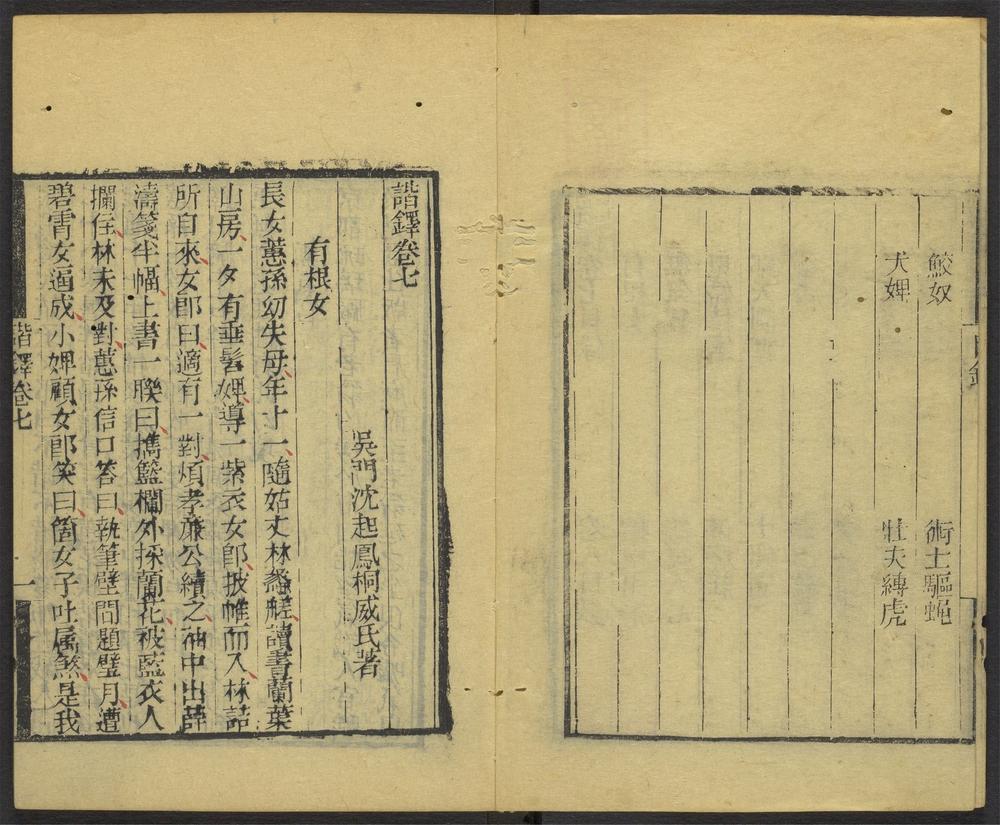 目錄
鮫奴
術士驅蝇
犬婢
壯夫縛虎
諧鐸卷七
吳門沈起鳳桐威氏著
有根女
長女蕙孫幼失母年十一隨姑丈林蠡槎讀書蘭葉
山房一夕有垂髫婢導一紫衣女郎披帷而入林詰
所自來女郎曰適有一對煩孝廉公續之袖中出薛
濤箋半幅上書一聯曰擕籃欄外採蘭花被藍衣人
攔住林未及對蕙孫信口答曰執筆壁間題璧月遭
碧霄女逼成小婢顧女郎笑曰箇女子吐属煞是我
諧鐸卷七
一